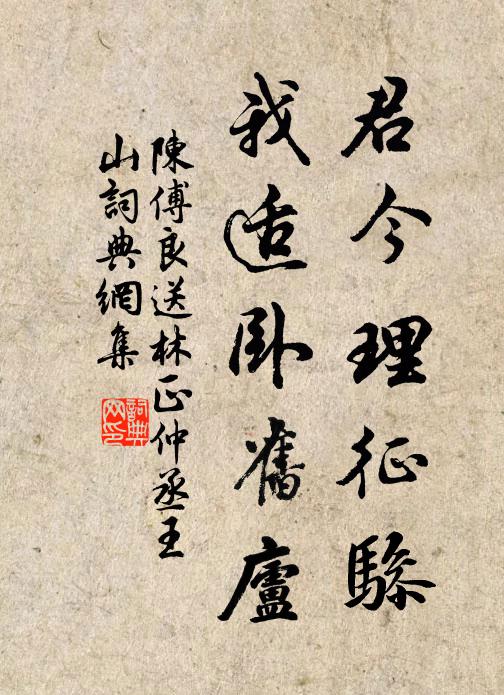 君今理征驂
我适臥舊廬
陳傅良送林正仲丞王
山詞典網集
詞典
网印